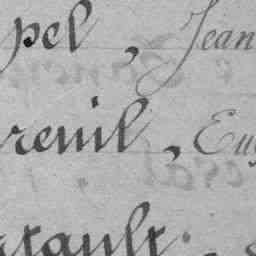 pel, Jean
reuil, Eug
tault.